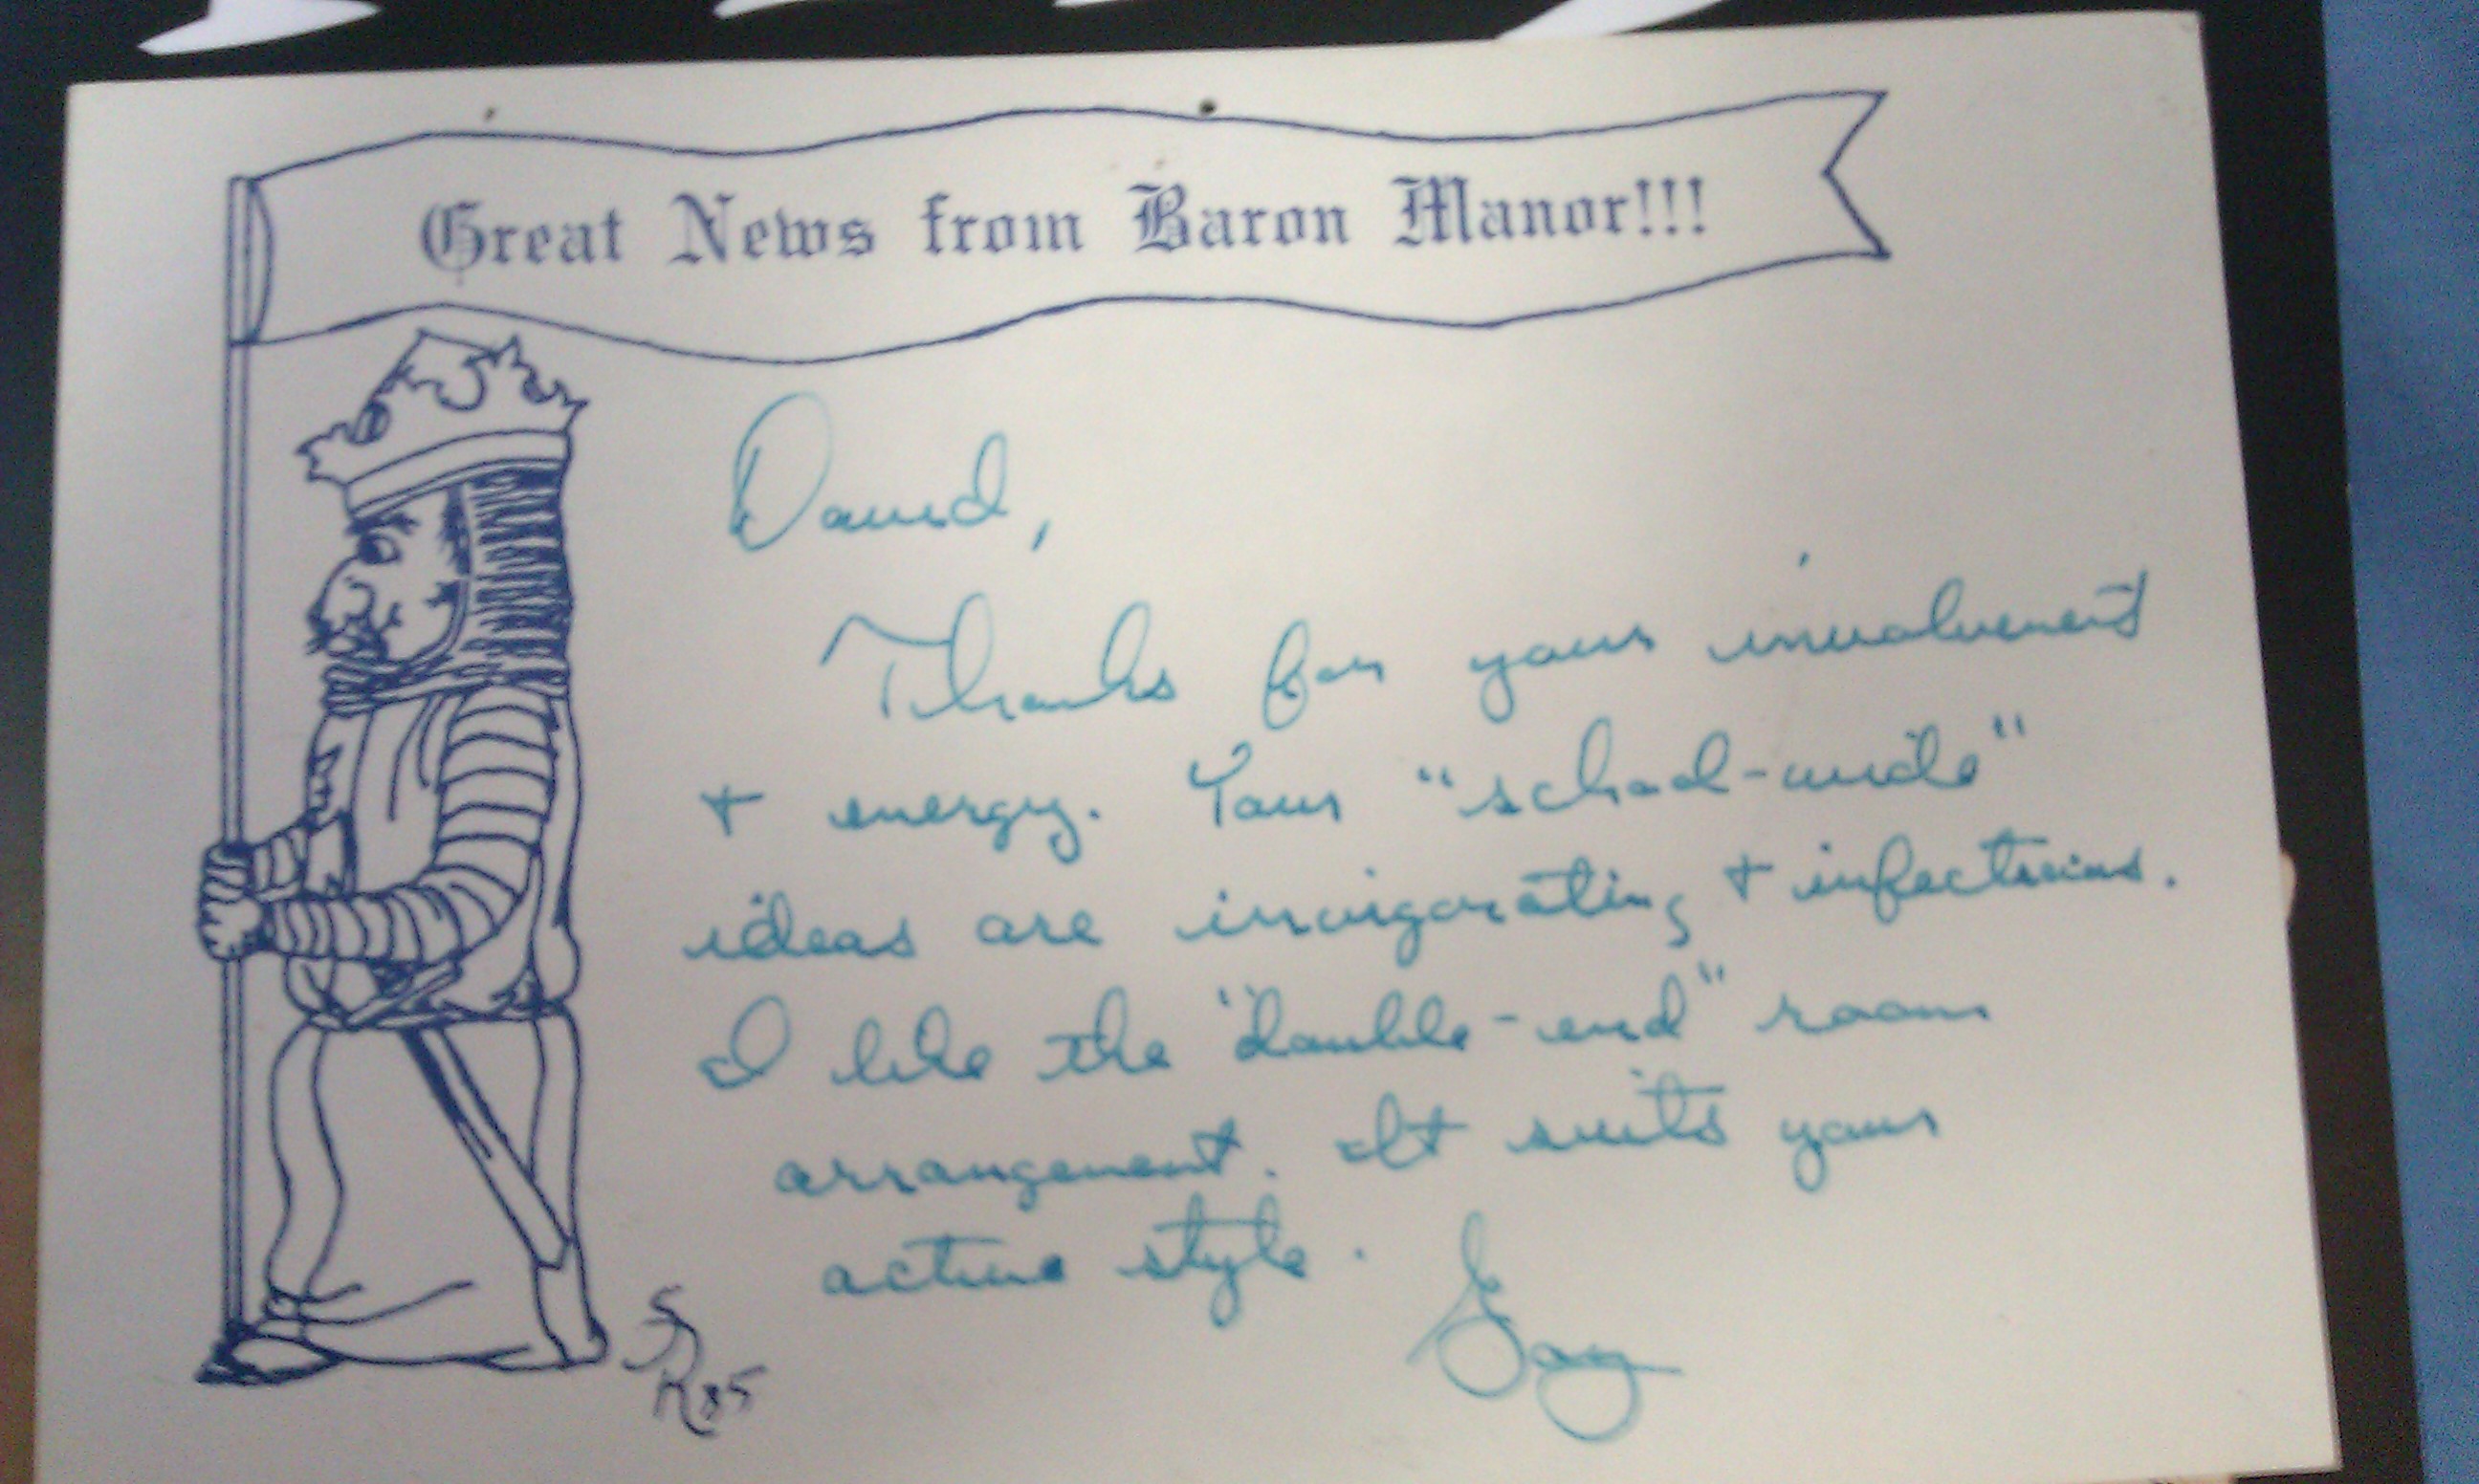 Great News from Baron Manor!!!
David,
Thanks for your involvement
+ energy. Your "school-wide"
ideas are invigorating + infectious.
I like the "double-end" room
arrangement. It suits your
active style.
Gay
SR 85